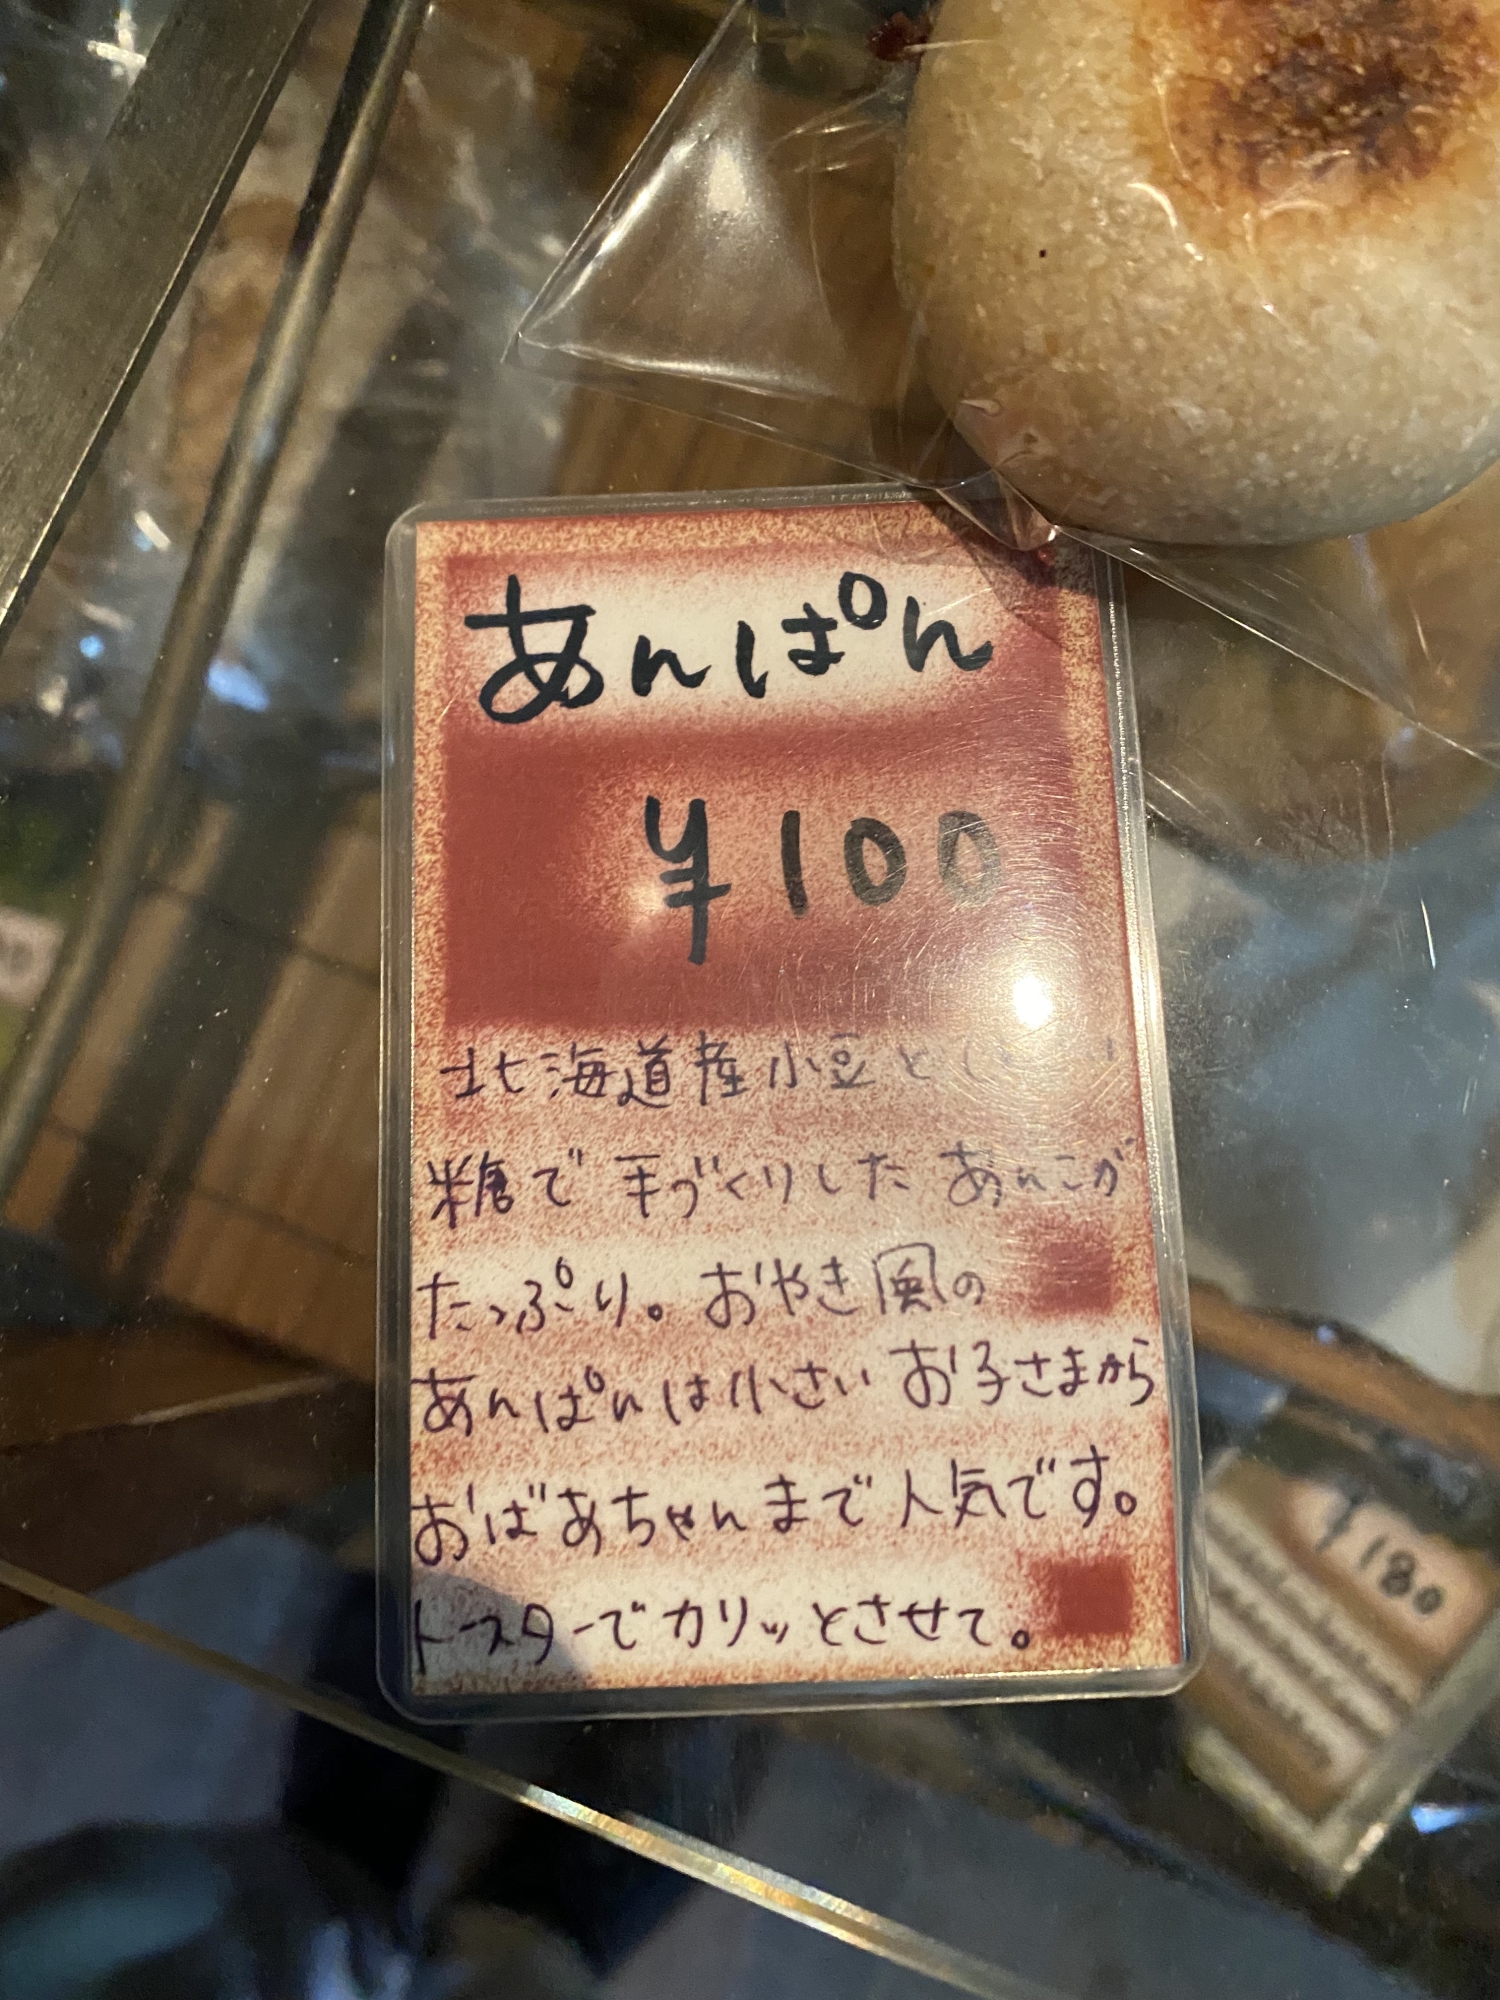 あんぱん
¥100
北海道産小豆と
糖で手づくりしたあんこが
たっぷり。おやき風の
あんぱんは小さいお子さまから
おばあちゃんまで人気です。
トースターでカリッとさせて。
¥180